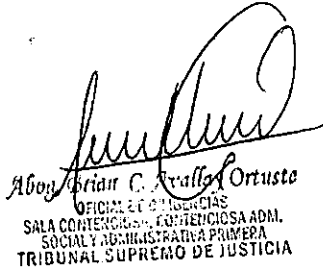 Abog. Brian C. Ortuste
OFICIAL DE DILIGENCIAS
SALA CONTENCIOSA, CONTENCIOSA ADM.
SOCIAL Y ADMINISTRATIVA PRIMERA
TRIBUNAL SUPREMO DE JUSTICIA